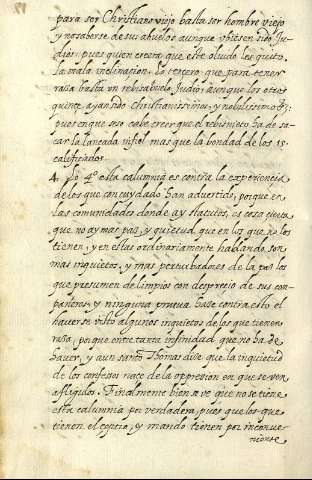 para ser Christiano viejo basta ser hombre viejo
y no saberse de sus abuelos aunque ubiesen sido Ju-
dios. pues quien creera que este olvido les quito
la mala inclinacion. Lo tercero que para tener
raça basta un rebisabuelo Judio, aunque los otros
quince ayan sido Christianissimos, y nobilissimos;
pues en que seso cabe creer que el rebisnieto ha de sa-
car la lançada infiel mas que la bondad de los 15
calificados.
4. Lo 4º esta calumnia es contra la experiencia
de los que con cuydado han advertido, porque en
las comunidades donde ay statutos, es cosa cierta
que no ay mas paz, y quietud que en las que no los
tienen, y en estas ordinariamente hablando son
mas inquietos, y mas perturbadores de la paz los
que presumen de limpios con desprecio de sus com-
pañeros, y ninguna prueva haze contra esto el
haverse visto algunos inquietos de los que tienen
raça, porque entre tanta infinidad que no ha de
haver, y aun sancto Thomas dize que la inquietud
de los confessos nace de la oppression en que se ven
afligidos. Finalmente bien se ve que no se tiene
esta calumnia por verdadera, pues los que
tienen el ... y mando tienen por inconve-
niente